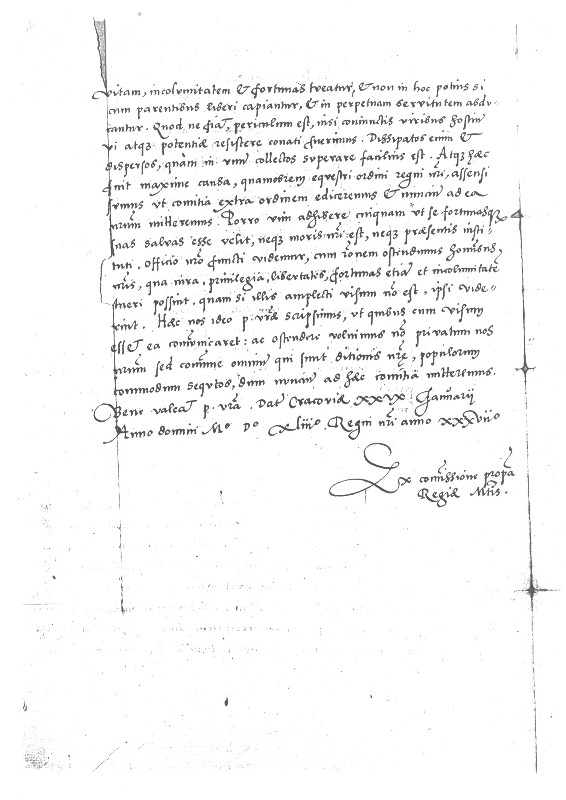 vitam, incolumitatem & fortunas tueatur, & non in hoc potius si
cum parentibus liberi capiantur, & in perpetuam servitutem abdu-
cantur. Quod ne fiat, periculum est, nisi coniunctis viribus hostium
vi atq; potentiæ resistere conati fuerimus. Dissipatos enim &
dispersos, quàm in unum collectos superare facilius est. Atq; hæc
fuit maxime causa, quamobrem equestri ordini regni nri, assensi
sumus ut comitia extra ordinem ediceremus & nuncium ad ea
nrum mitteremus. Porro vim adhibere cuiquam ut se fortunasq;
suas salvas esse velit, neq; moris nri est, neq; præsentis insti-
tuti. Officio nro functi videmur, cum ronem ostendimus hominibus
nris, qua iura, privilegia, libertates, fortunas etiam et incolumitate
tueri possint. quam si illis amplecti visum no est, ipsi vide-
rint. Hæc nos ideo p. vræ scripsimus, ut quibus cum visum
esset ea comunicaret: ac ostendere voluimus no privatum nos
nrum sed comune omnium qui sunt ditionis nræ, populorum
commodum sequutos, dum nuncium ad hæc comitia mitteremus.
Bene valeat p. vra. Dat Cracoviæ XXIX Januarii
Anno domini Mo Do XLiiio. Regni nri anno XXXviio
Ex comissione propa
Regiæ Mtis.